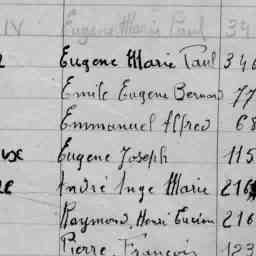 IV Eugène Marie Paul 34
Eugène Marie Paul 346
Emile Eugène Bernard 77
Emmanuel Alfred 68
Eugène Joseph 115
André Inge Marie 216
Raymond, Henri Lucien 216
Pierre, François 123